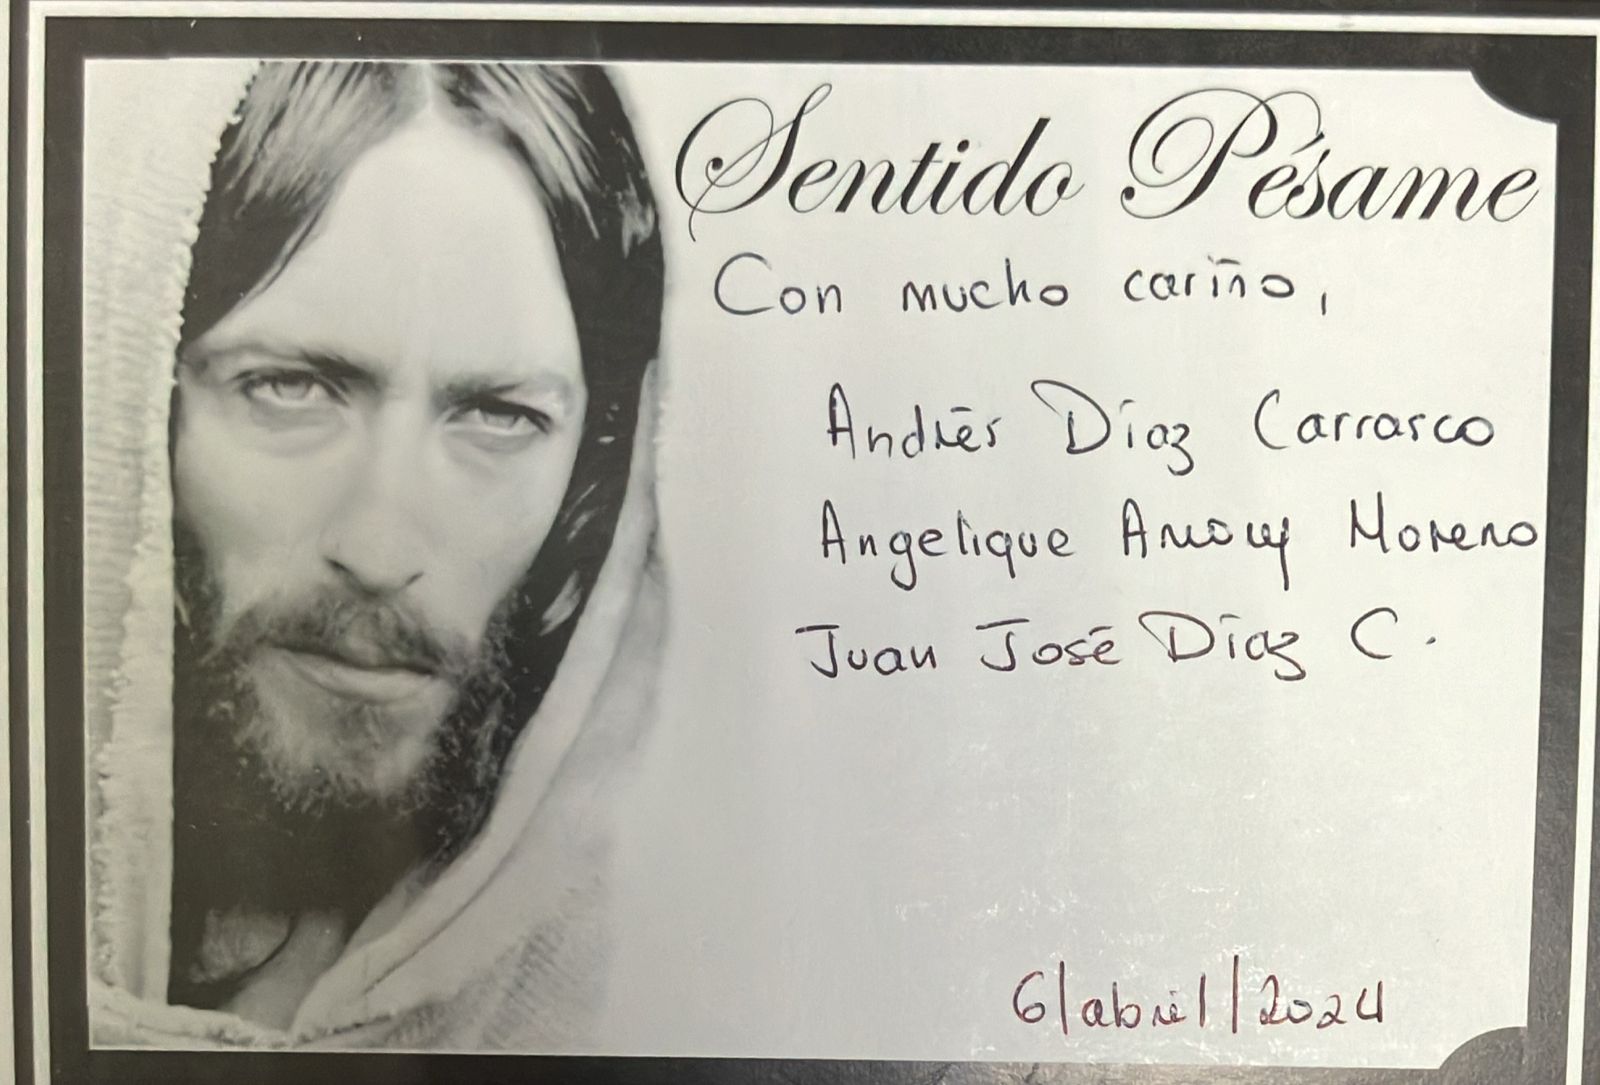 Sentido Pésame
Con mucho cariño,
Andrés Díaz Carrasco
Angelique Amoly Moreno
Juan José Díaz C.
6/abril/2024